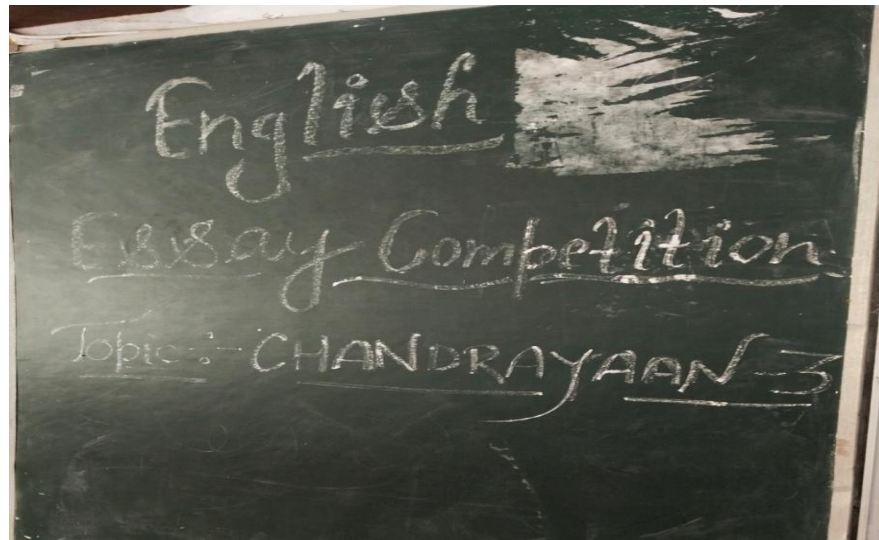 English
Essay Competition
Topic :- CHANDRAYAAN-3